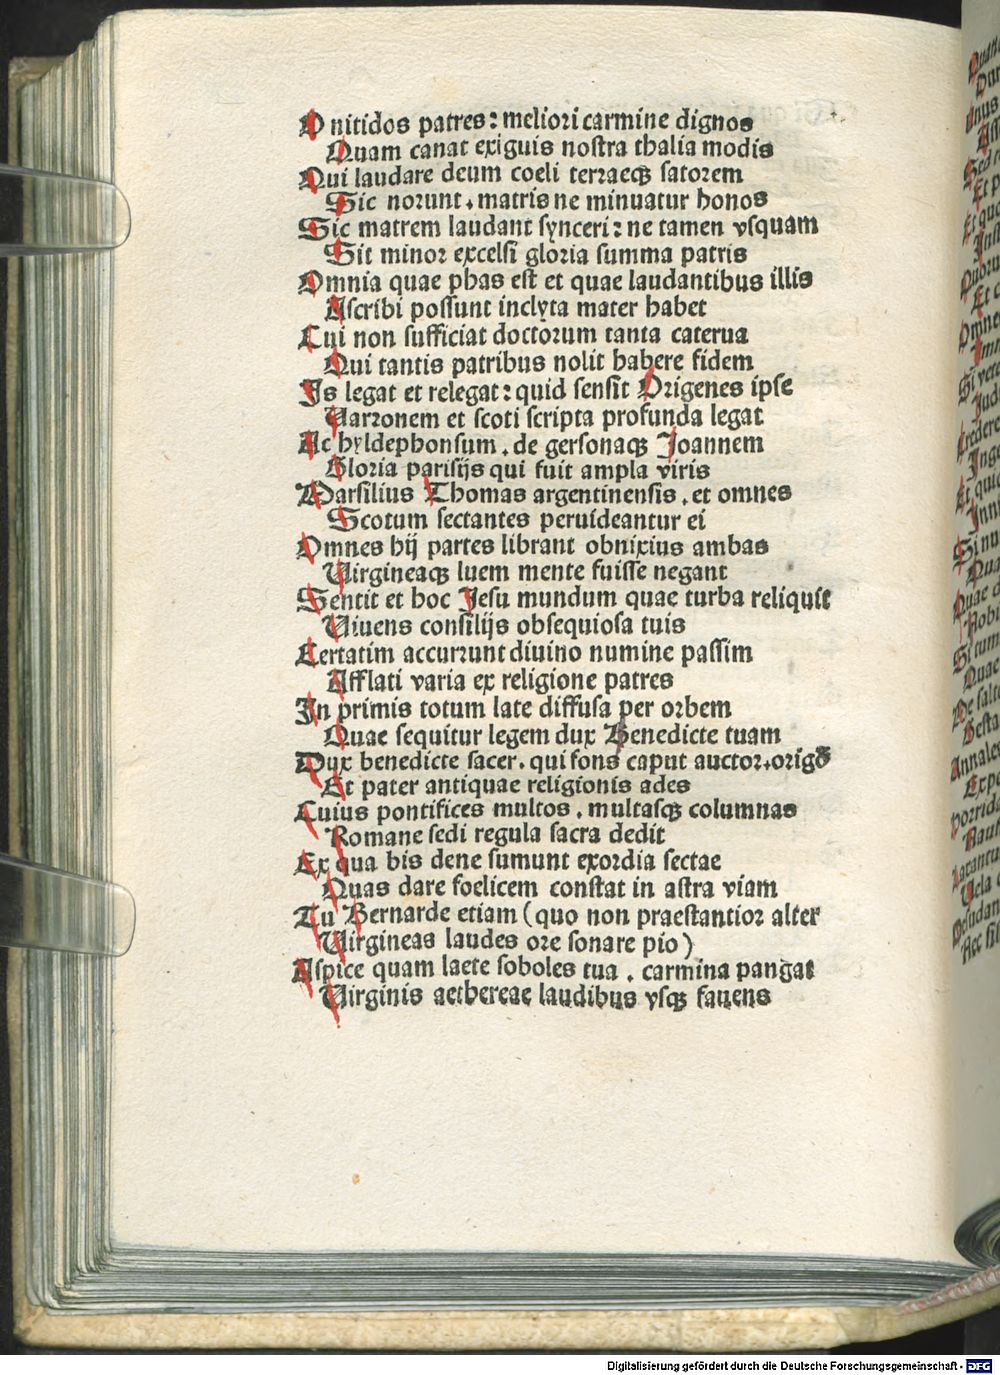 O nitidos patres: meliori carmine dignos
Quam canat exiguis nostra thalia modis
Qui laudare deum coeli terraeqꝫ satorem
Sic norunt. matris ne minuatur honos
Sic matrem laudant synceri: ne tamen vsquam
Sit minor excelsi gloria summa patris
Omnia quae phas est et quae laudantibus illis
Ascribi possunt inclyta mater habet
Cui non sufficiat doctorum tanta caterua
Qui tantis patribus nolit habere fidem
Is legat et relegat: quid sensit Origenes ipse
Varronem et scoti scripta profunda legat
Ac hyldephonsum. de gersonaqꝫ Joannem
Gloria parisijs qui fuit ampla viris
Marsilius Thomas argentinensis. et omnes
Scotum sectantes peruideantur ei
Omnes hij partes librant obnixius ambas
Virgineaqꝫ luem mente fuisse negant
Sentit et hoc Jesu mundum quae turba reliquit
Viuens consilijs obsequiosa tuis
Certatim accurrunt diuino numine passim
Afflati varia ex religione patres
In primis totum late diffusa per orbem
Quae sequitur legem dux Benedicte tuam
Dux benedicte sacer. qui fons caput auctor. origo
Et pater antiquae religionis ades
Cuius pontifices multos. multasqꝫ columnas
Romane sedi regula sacra dedit
Ex qua bis dene sumunt exordia sectae
Quas dare foelicem constat in astra viam
Tu Bernarde etiam (quo non praestantior alter
Virgineas laudes ore sonare pio)
Aspice quam laete soboles tua. carmina pangat
Virginis aethereae laudibus vsqꝫ fauens
Digitalisierung gefördert durch die Deutsche Forschungsgemeinschaft - DFG